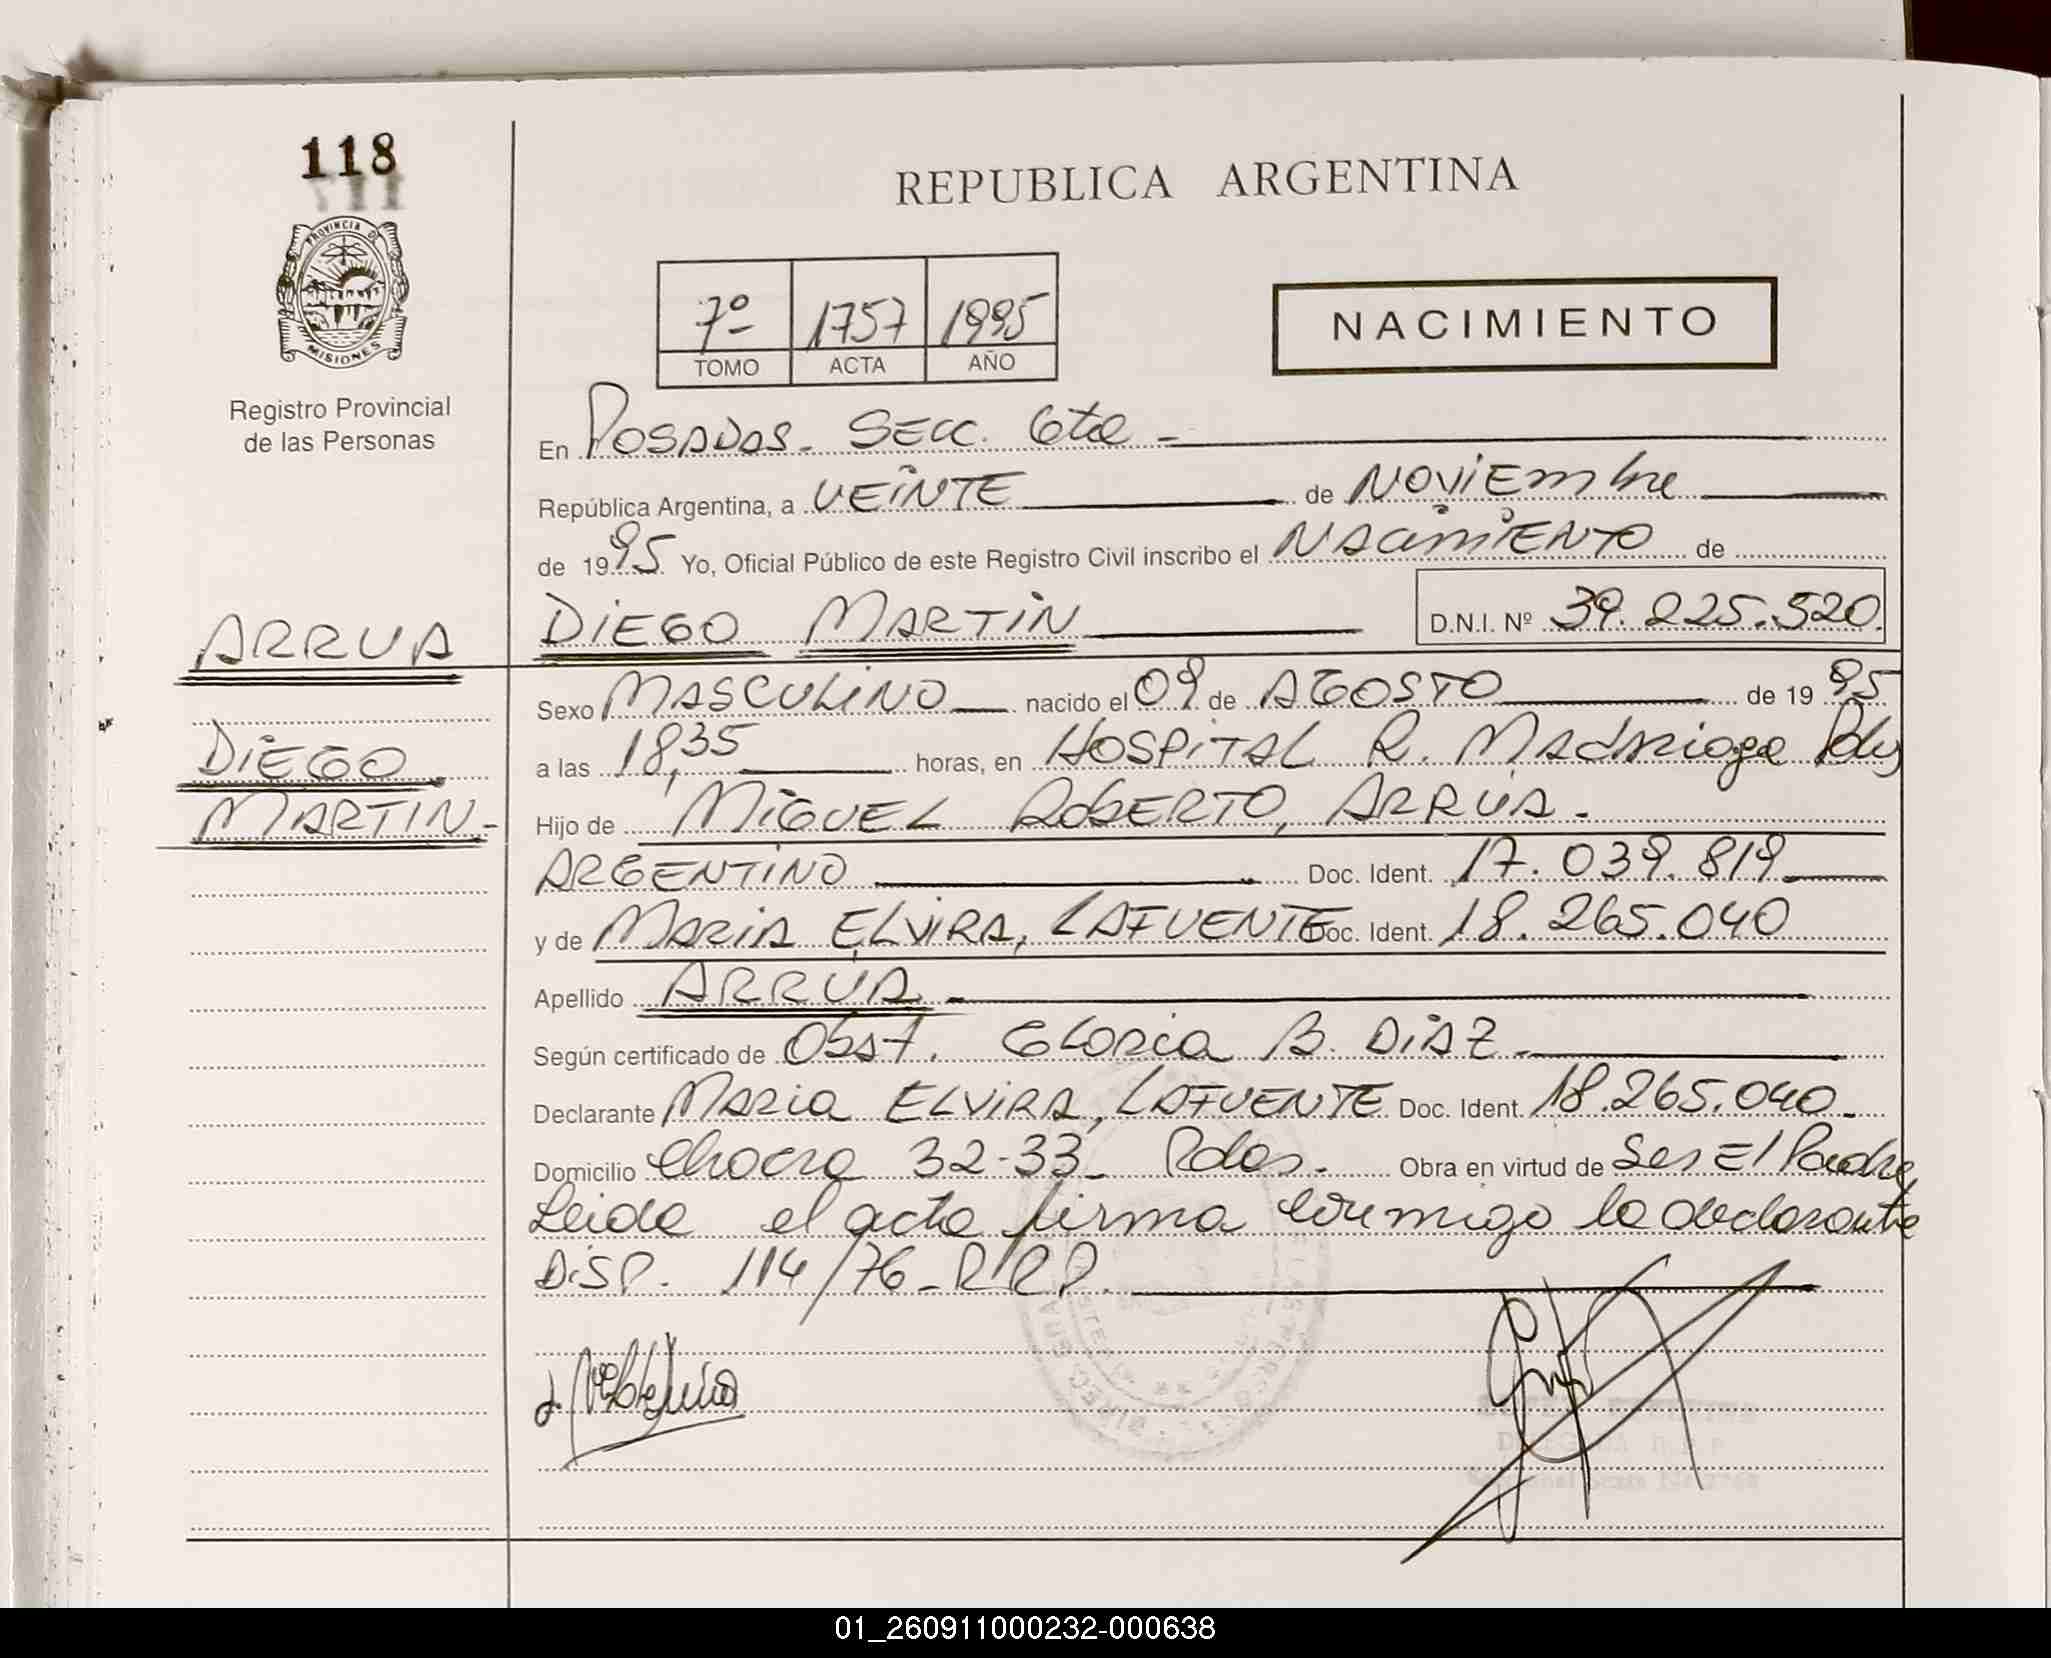 118
REPUBLICA ARGENTINA
PROVINCIA DE
MISIONES
Registro Provincial
de las Personas
7º 1757 1995
TOMO ACTA AÑO
NACIMIENTO
En POSADAS - SECC. 6ta -
República Argentina, a VEINTE de NOViEmbre
de 1995 Yo, Oficial Público de este Registro Civil inscribo el NACimiENTO de
ARRUA
DiEGO MARTiN D.N.I. Nº 39.225.520.
Sexo MASCULiNO nacido el 09 de AGOSTO de 1995
DiEGO
a las 18,35 horas, en HOSPiTAL R. Madariaga Pdas
MARTIN -
Hijo de MiGUEL ROBERTO, ARRÚA. -
ARGENTiNO Doc. Ident. 17.039.819
y de MARiA ELViRA, LAFUENTE Doc. Ident. 18.265.040
Apellido ARRÚA -
Según certificado de Obst. GLORiA B. DiAZ -
Declarante MARiA ELViRA, LAFUENTE Doc. Ident. 18.265.040 -
Domicilio Chacra 32-33 - Pdas. Obra en virtud de Ser El Padre,
Leida el acta firma conmigo la declarante
DiSP. 114/76 - R.R.P.
01_260911000232-000638